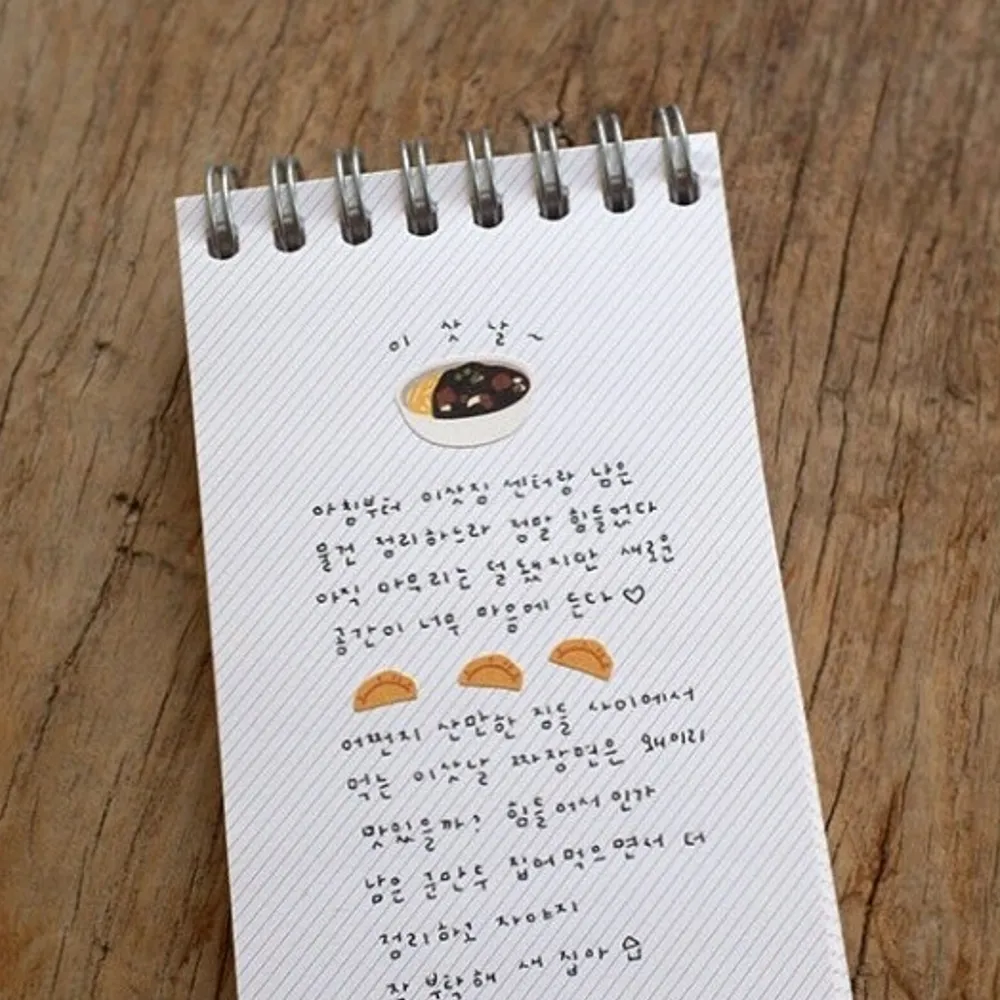 이 삿 날 ~
아침부터 이삿짐 센터랑 남은
물건 정리하느라 정말 힘들었다
아직 마무리는 덜 됐지만 새로운
공간이 너무 마음에 든다 ♡
어쩐지 산만한 짐들 사이에서
먹는 이삿날 짜장면은 왜이리
맛있을까? 힘들어서 인가
남은 군만두 집어먹으면서 더
정리하고 자야지
잘 부탁해 새 집아